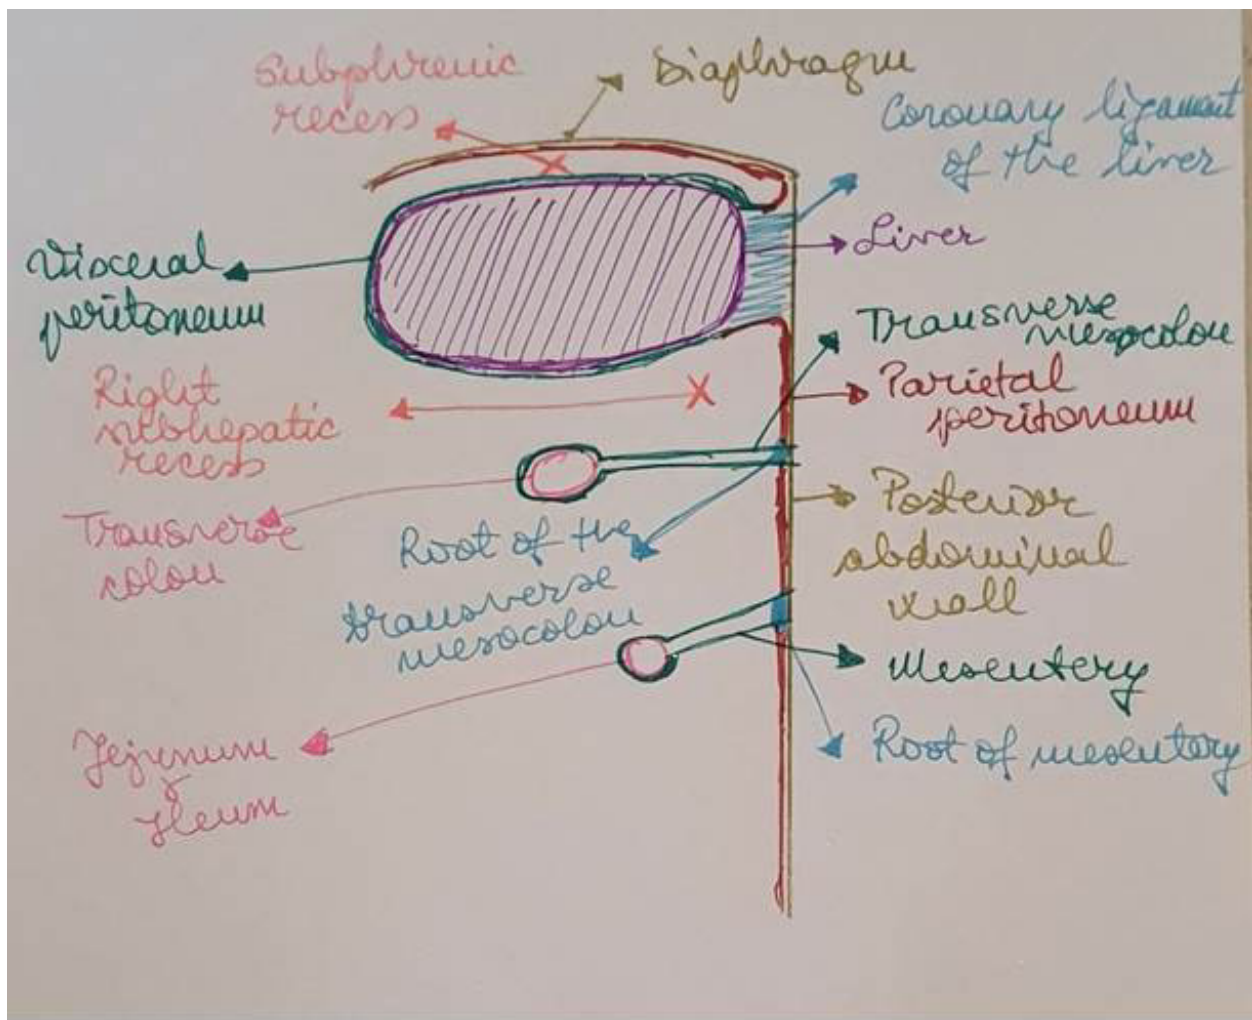 Subphrenic
recess
Diaphragm
Coronary ligament
of the liver
Liver
Visceral
peritoneum
Transverse
mesocolon
Parietal
peritoneum
Right
subhepatic
recess
Transverse
colon
Root of the
transverse
mesocolon
Posterior
abdominal
wall
Mesentery
Root of mesentery
Jejunum
Ileum